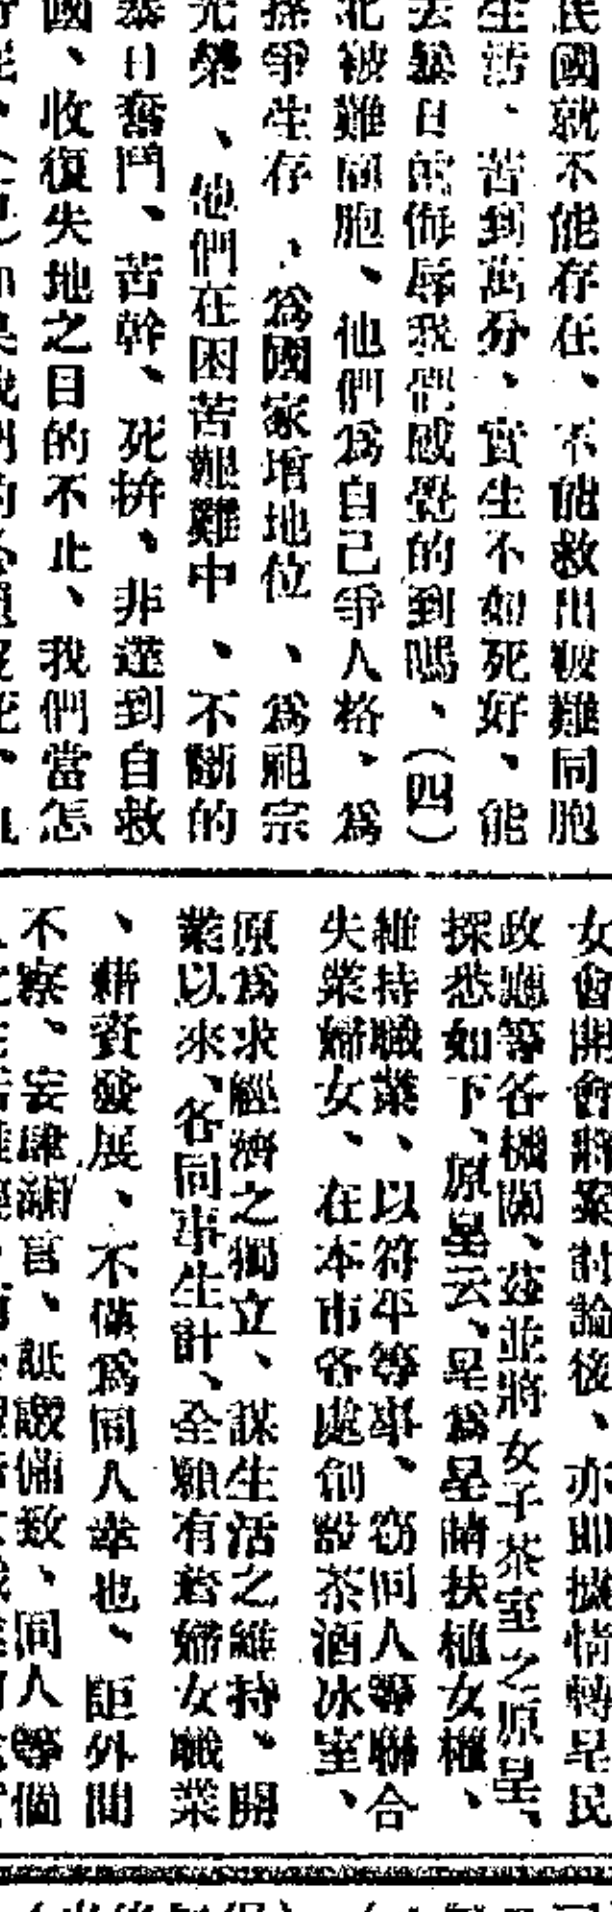 民國就不能存在、不能救出被難同胞
生活、苦到萬分、實生不如死好、能
去暴日的侮辱我們感覺的到嗎、(四)
北被難同胞、他們爲自己爭人格、爲
族爭生存、爲國家增地位、爲祖宗
光榮、他們在困苦艱難中、不斷的
暴日奮鬥、苦幹、死拚、非達到自救
國、收復失地之目的不止、我們當怎
女會開會將案討論後、亦即據情轉呈民
政廳等各機關、茲並將女子茶室之原呈、
探悉如下、原呈云、呈爲呈請扶植女權、
維持職業、以符平等事、窃同人等聯合
失業婦女、在本市各處創設茶酒冰室、
原爲求經濟之獨立、謀生活之維持、開
業以來、各同事生計、全賴有着婦女職業
、藉資發展、不僅爲同人幸也、詎外間
不察、妄肆讕言、詆譭備致、同人等個